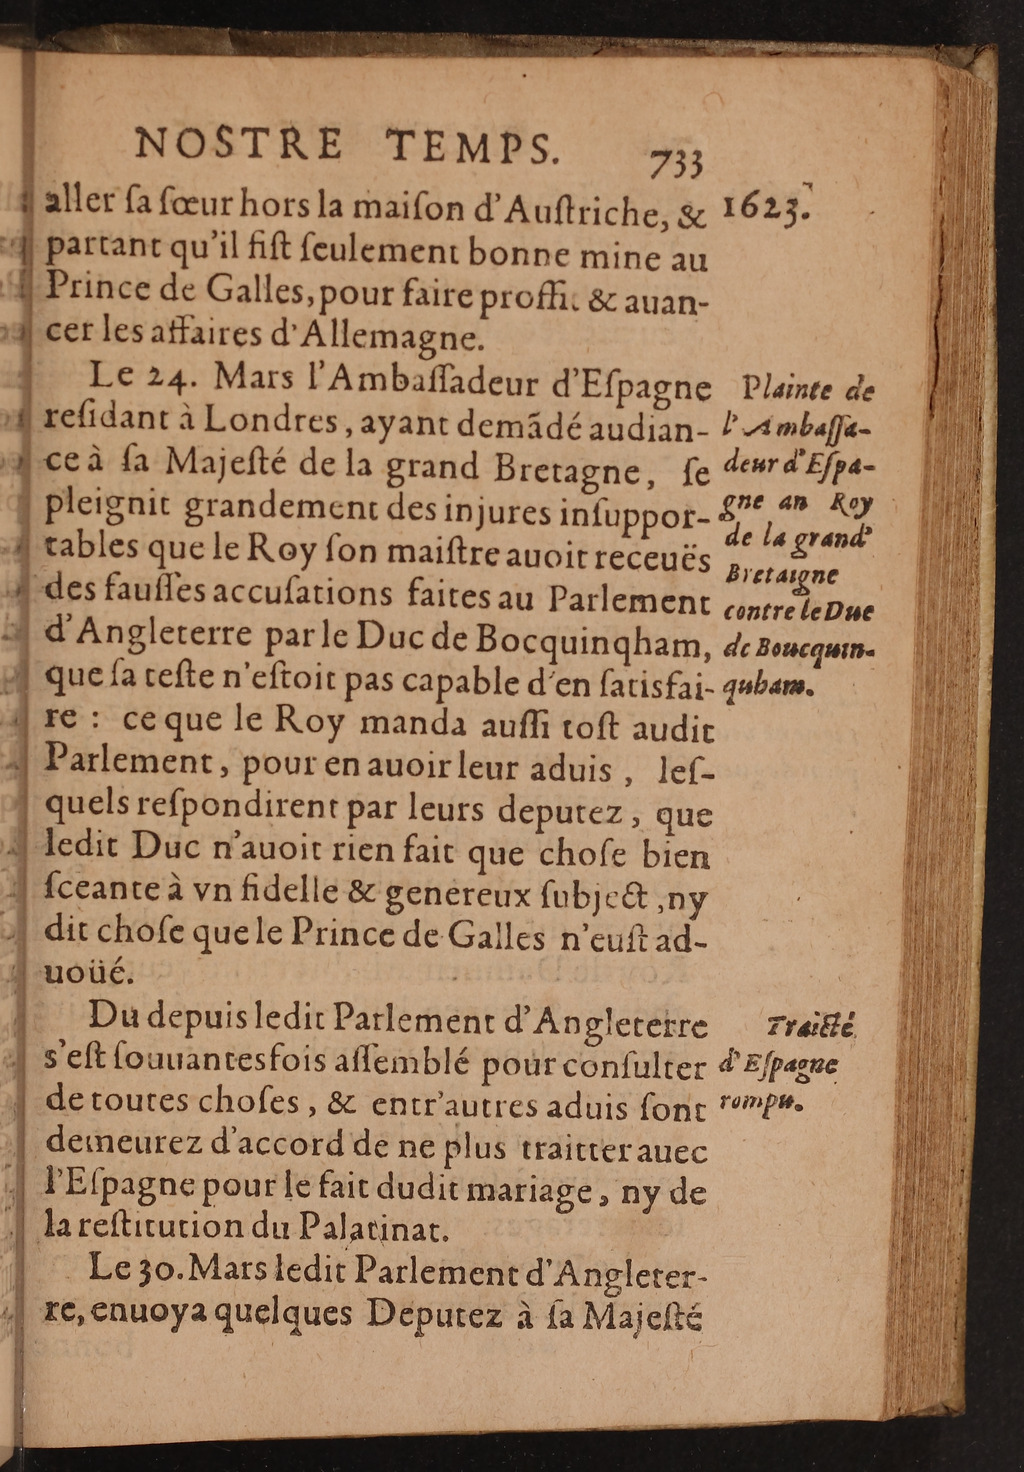 NOSTRE TEMPS. 733
aller ſa ſœur hors la maiſon d'Auſtriche, &
1623.
partant qu'il fiſt ſeulement bonne mine au
Prince de Galles, pour faire proffi. & auan-
cer les affaires d'Allemagne.
Le 24. Mars l'Ambaſſadeur d'Eſpagne
reſidant à Londres, ayant demãdé audian-
ce à ſa Majeſté de la grand Bretagne, ſe
pleignit grandement des injures inſuppor-
tables que le Roy ſon maiſtre auoit receuës
des fauſſes accuſations faites au Parlement
d'Angleterre par le Duc de Bocquinqham,
que ſa teſte n'eſtoit pas capable d'en ſatisfai-
re : ce que le Roy manda auſſi toſt audit
Parlement, pour en auoir leur aduis, leſ-
quels reſpondirent par leurs deputez, que
ledit Duc n'auoit rien fait que choſe bien
ſceante à vn fidelle & genereux ſubject, ny
dit choſe que le Prince de Galles n'euſt ad-
uoüé.
Plainte de
l'Ambaſſa-
deur d'Eſpa-
gne au Roy
de la grand'
Bretaigne
contre le Duc
de Boucquin-
qubam.
Du depuis ledit Parlement d'Angleterre
s'eſt ſouuantesfois aſſemblé pour conſulter
de toutes choſes, & entr'autres aduis ſont
demeurez d'accord de ne plus traitter auec
l'Eſpagne pour le fait dudit mariage, ny de
la reſtitution du Palatinat.
Traicté
d'Eſpagne
rompu.
Le 30. Mars ledit Parlement d'Angleter-
re, enuoya quelques Deputez à ſa Majeſté